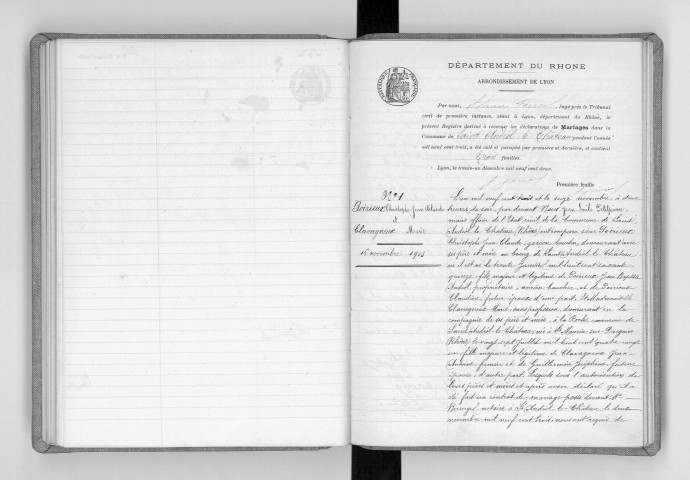 DÉPARTEMENT DU RHONE
ARRONDISSEMENT DE LYON
Par nous, Juge près le Tribunal
civil de première instance, séant à Lyon, département du Rhône, le
présent Registre destiné à recevoir les déclarations de Mariages dans la
Commune de Saint Andéol le Château pendant l'année
mil neuf cent trois, a été coté et paraphé par première et dernière, et contient
trois feuilles.
Lyon, le trente-un décembre mil neuf cent deux.
Première feuille
N° 1
Poirieux Christophe Jean Claude
et
Clavagneux Marie
16 novembre 1903
L'an mil neuf cent trois et le seize novembre à deux
heures du soir, par devant Nous Jean
maire officier de l'Etat civil de la Commune de Saint
Andéol le Château (Rhône) ont comparu sieur Poirieux
Christophe Jean Claude, garçon boucher, demeurant avec
ses père et mère au bourg de Saint Andéol le Château
où il est né le trente Janvier mil huit cent soixante
quinze fils majeur et légitime de Poirieux Jean Baptiste
propriétaire, ancien boucher et de Poirieux
Claudine, futur époux d'une part, Et Mademoiselle
Clavagneux Marie, sans profession, demeurant en la
compagnie de ses père et mère, à la Roche commune de
Saint Andéol le Château, née à St Maurice sur Dargoire
(Rhône) le vingt sept Juillet mil huit cent quatre vingt
un fille majeure et légitime de Clavagneux Jean
Antoine fermier et de Guillermin Joséphine, future
épouse, d'autre part. Lesquels sous l'autorisation de
leurs père et mère et après avoir déclaré qu'il a
été fait un contrat de mariage passé devant Me
notaire à St Andéol le Château, le deux
novembre mil neuf cent trois, nous ont requis de